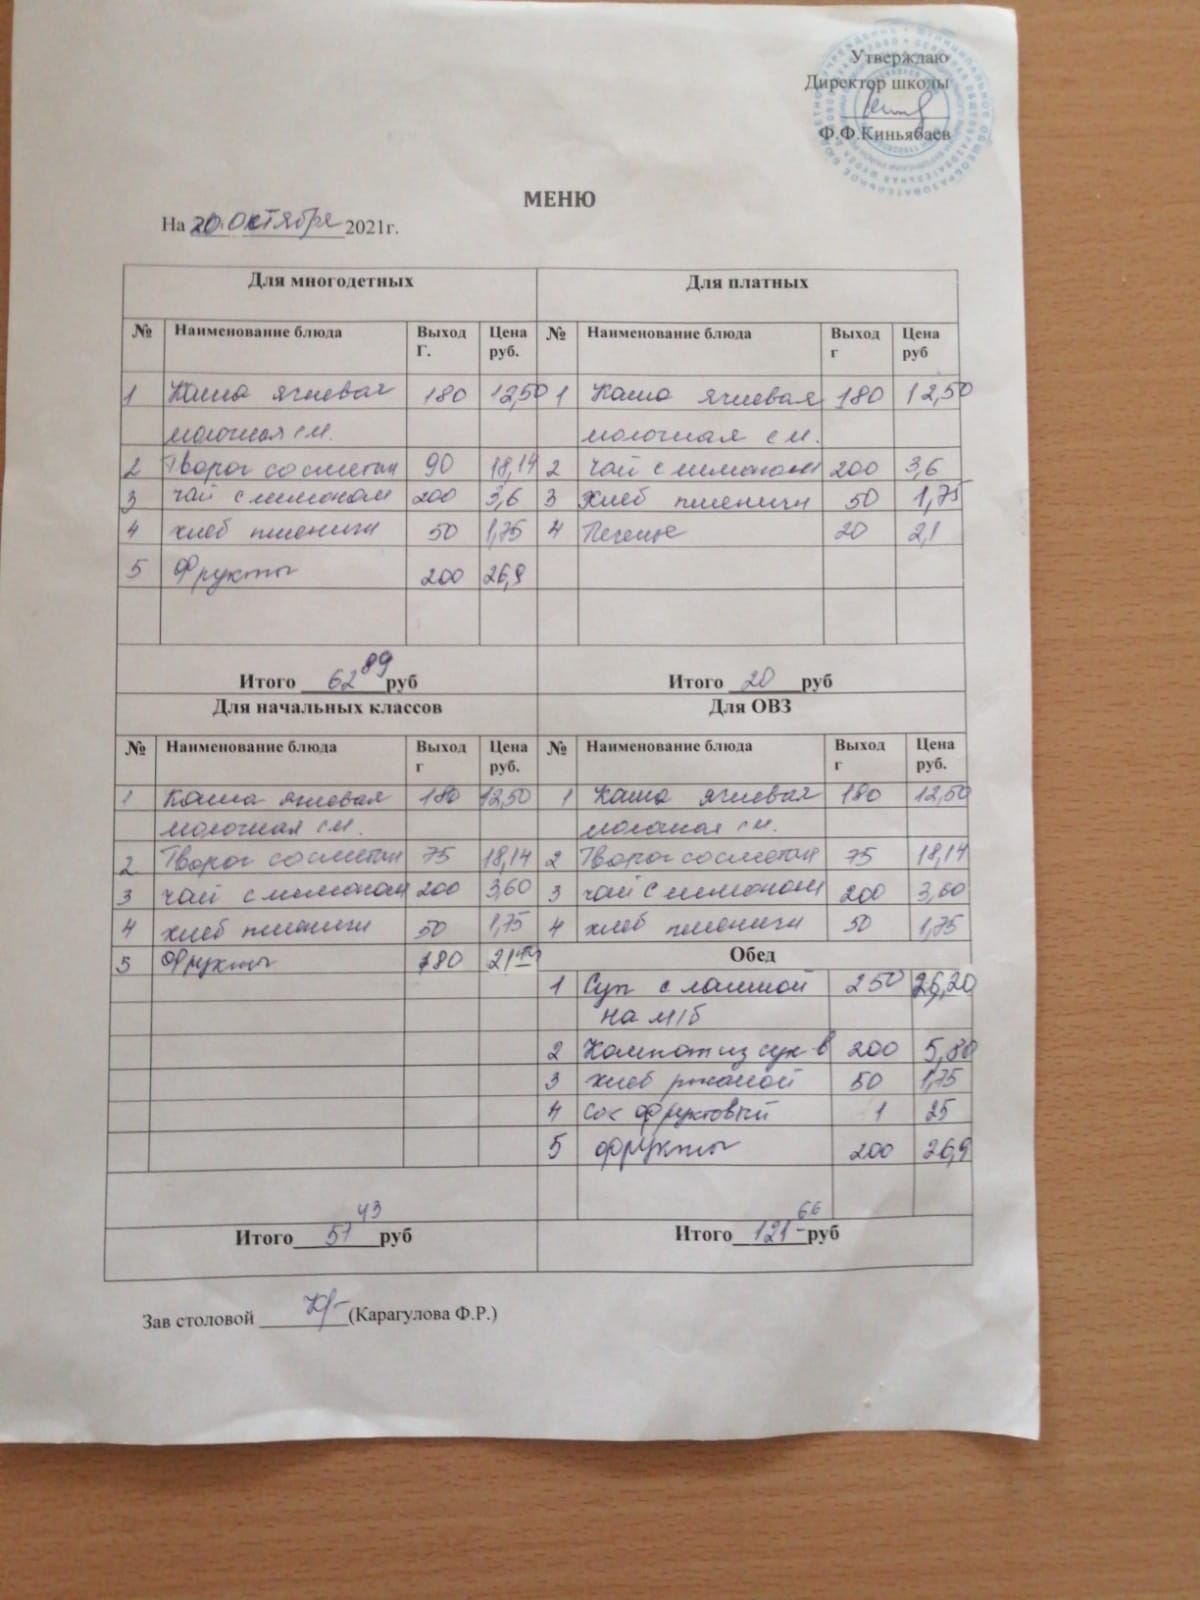 Утверждаю
Директор школы
Ф.Ф.Киньябаев
МЕНЮ
На 20.Октября 2021г.
Для многодетных Для платных
№ Наименование блюда Выход Г. Цена руб. № Наименование блюда Выход г Цена руб
1 Каша ячневая 180 12,50 1 Каша ячневая 180 12,50
молочная с м. молочная с м.
2 Творог со сметан 90 18,14 2 Чай с лимоном 200 3,6
3 Чай с лимоном 200 3,6 3 Хлеб пшеничн 50 1,75
4 хлеб пшеничн 50 1,75 4 Печенье 20 2,1
5 Фрукты 200 26,9
Итого 62 89 руб Итого 20 руб
Для начальных классов Для ОВЗ
№ Наименование блюда Выход г Цена руб. № Наименование блюда Выход г Цена руб.
1 Каша ячневая 180 12,50 1 Каша ячневая 180 12,50
молочная с м. молочная с м.
2 Творог со сметан 75 18,14 2 Творог со сметан 75 18,14
3 чай с лимоном 200 3,60 3 чай с лимоном 200 3,60
4 хлеб пшеничн 50 1,75 4 хлеб пшеничн 50 1,75
5 Фрукты 180 21 Обед
1 Суп с лапшой 250 26,20
на м/б
2 Компот из сух-в 200 5,80
3 хлеб ржаной 50 1,75
4 Сок фруктовый 1 25
5 фрукты 200 26,9
Итого 57 43 руб Итого 121 - 66 руб
Зав столовой (Карагулова Ф.Р.)